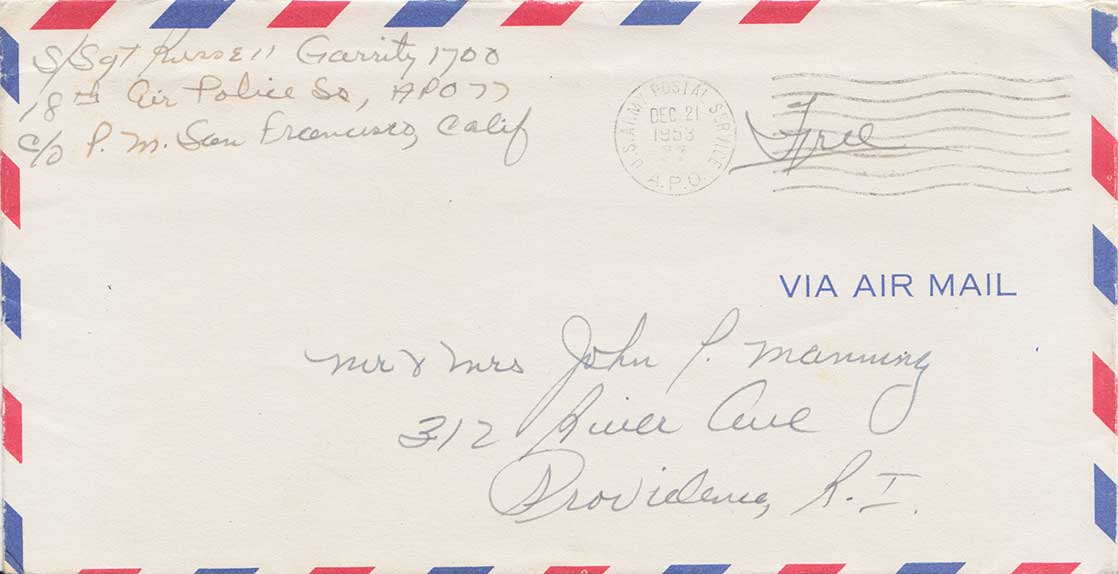 S/Sgt Russell Garrity 1700
18th Air Police Sq, APO 77
c/o P. M. San Francisco, Calif
U.S. ARMY POSTAL SERVICE
DEC 21
1953
A.P.O.
Free
VIA AIR MAIL
Mr & Mrs John P. Manning
312 River Ave
Providence, R. I.